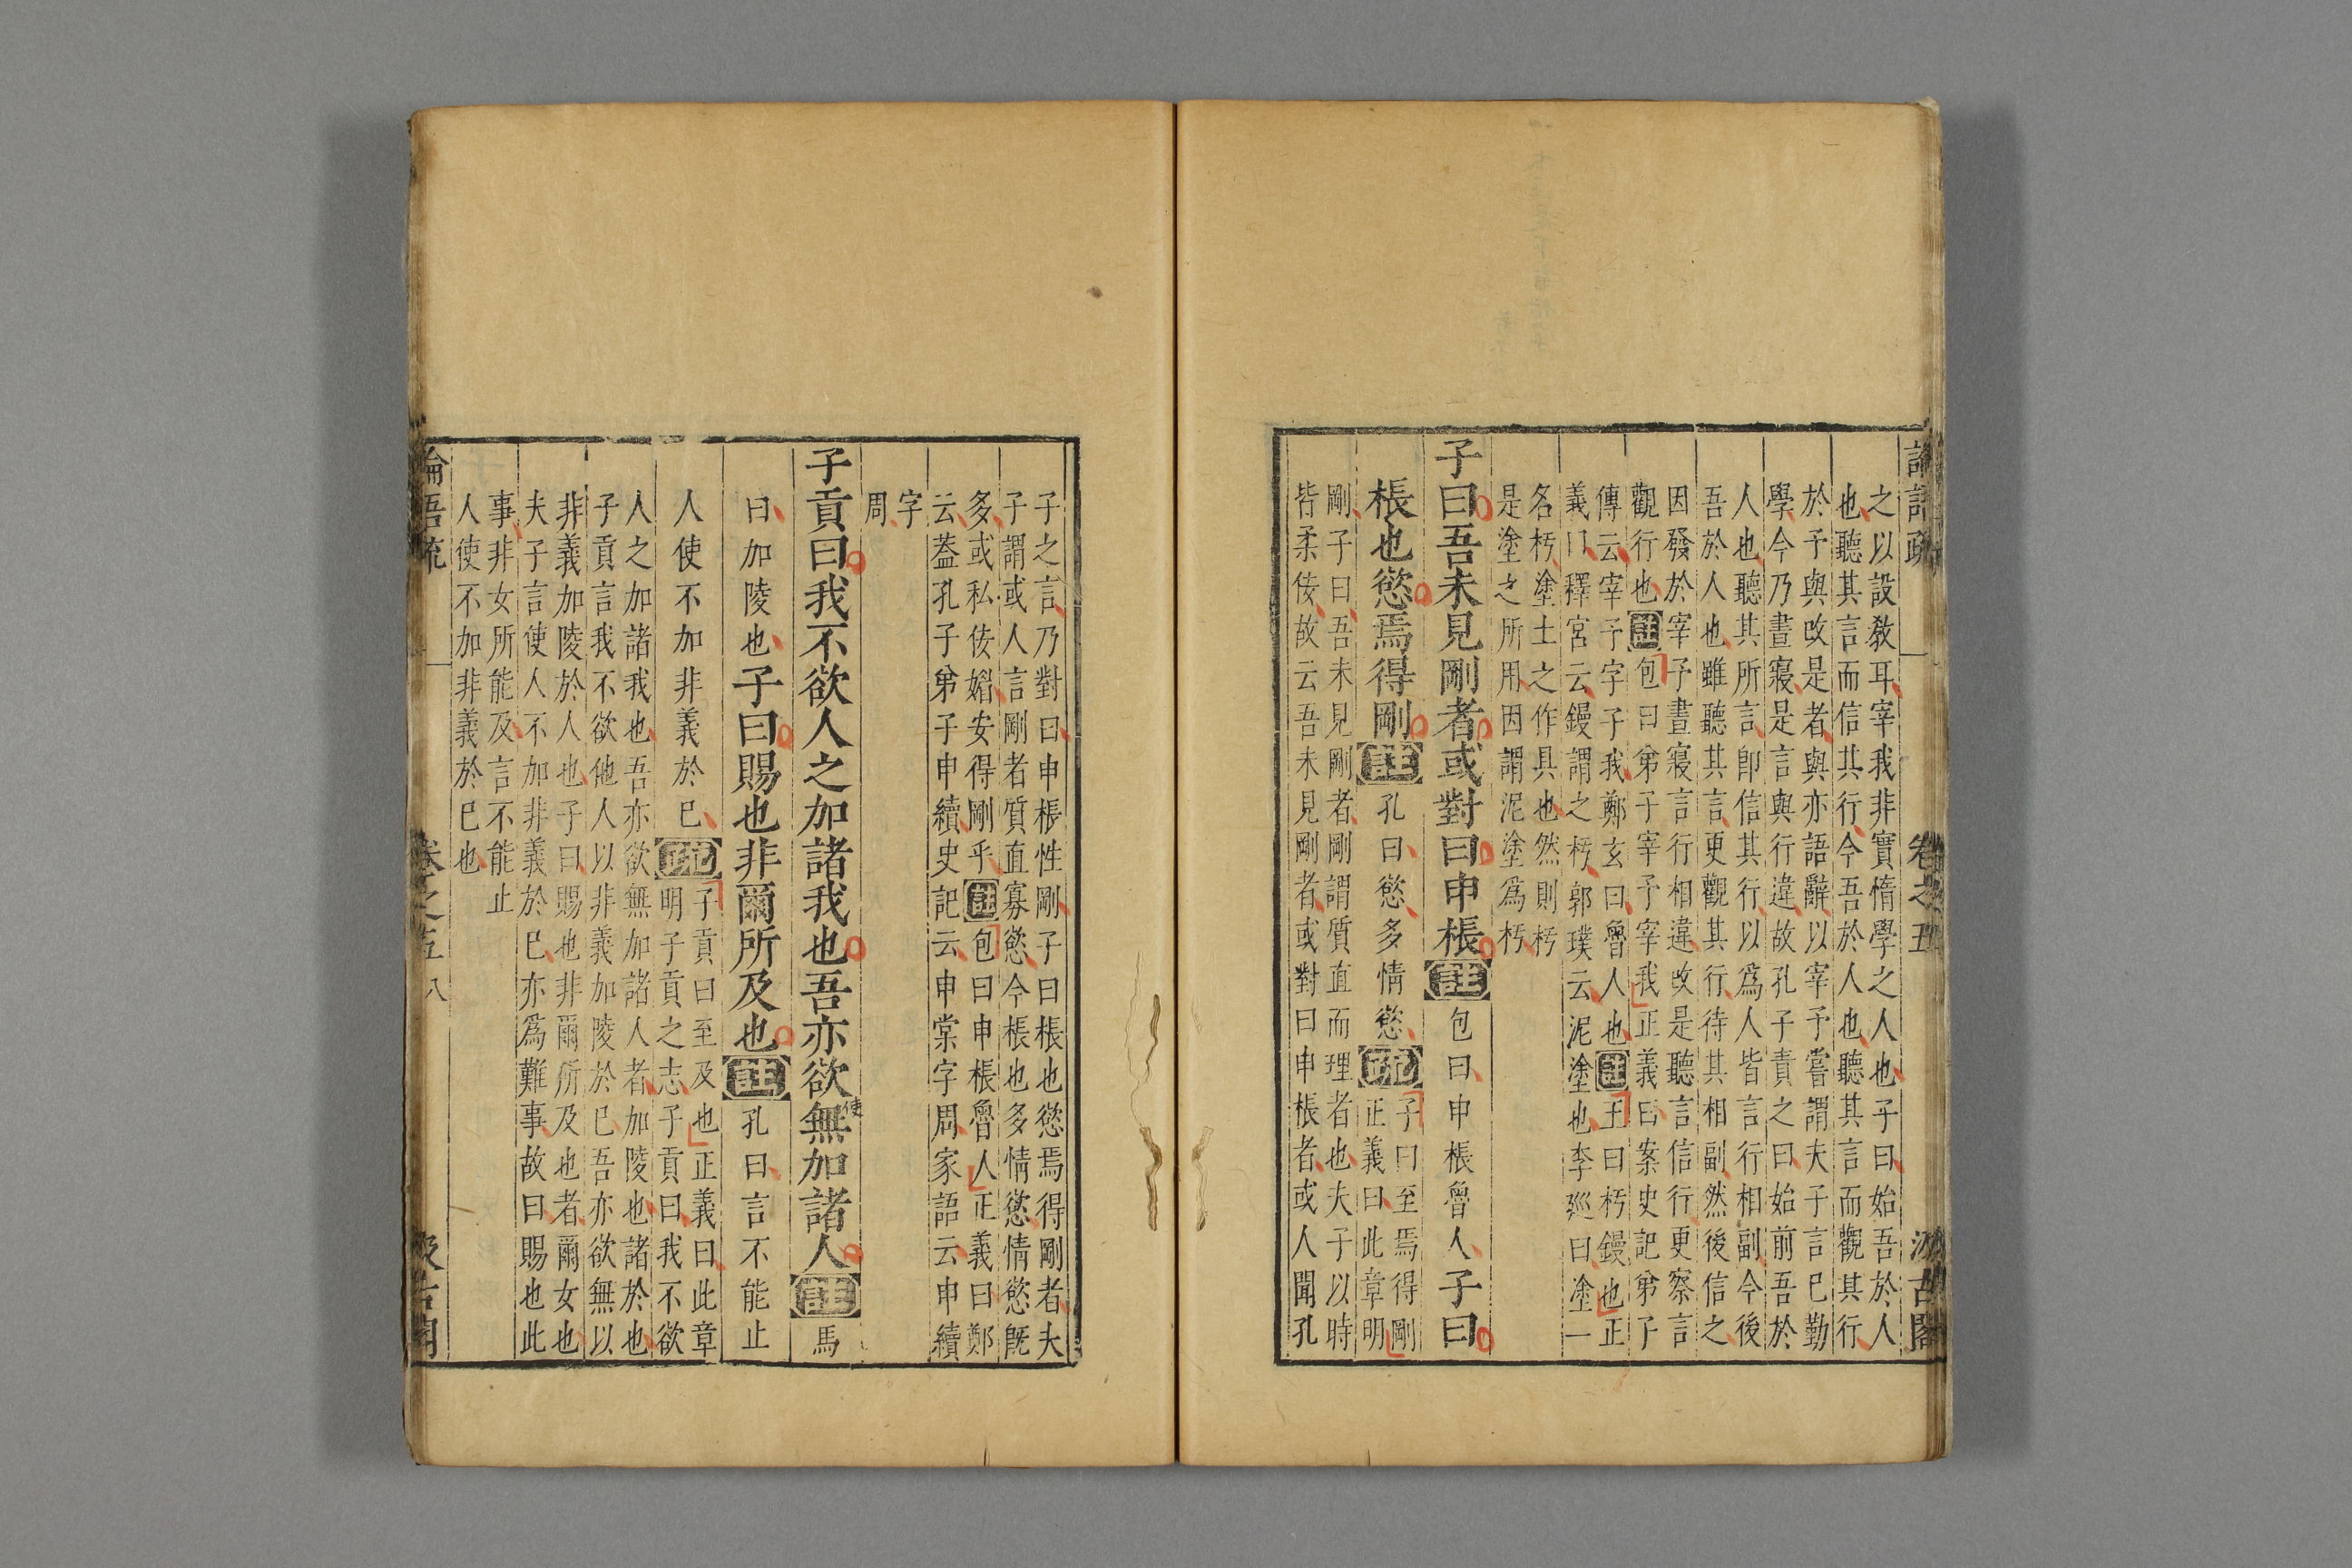 論語疏
卷之五
汲古閣
之以設敎耳宰我非實惰學之人也子曰始吾於人
也聽其言而信其行今吾於人也聽其言而觀其行
於予與改是者與亦語辭以宰予嘗謂夫子言已勤
學今乃晝寢是言與行違故孔子責之曰始前吾於
人也聽其所言卽信其行以爲人皆言行相副今後
吾於人也雖聽其言更觀其行待其相副然後信之
因發於宰予晝寢言行相違改是聽言信行更察言
觀行也註包曰弟子宰予宰我正義曰案史記弟子
傳云宰予字子我鄭玄曰魯人也註王曰杇鏝也正
義曰釋宮云鏝謂之杇郭璞云泥塗也李廵曰塗一
名杇塗土之作具也然則杇
是塗之所用因謂泥塗爲杇
子曰吾未見剛者或對曰申棖註包曰申棖魯人子曰
棖也慾焉得剛註孔曰慾多情慾疏
子曰至焉得剛
正義曰此章明
剛子曰吾未見剛者剛謂質直而理者也夫子以時
皆柔佞故云吾未見剛者或對曰申棖者或人聞孔
子之言乃對曰申棖性剛子曰棖也慾焉得剛者夫
子謂或人言剛者質直寡慾今棖也多情慾情慾旣
多或私佞媚安得剛乎註包曰申棖魯人正義曰鄭
云蓋孔子弟子申續史記云申棠字周家語云申續
字
周
子貢曰我不欲人之加諸我也吾亦欲無加諸人註馬
使
曰加陵也子曰賜也非爾所及也註孔曰言不能止
人使不加非義於已疏
子貢曰至及也正義曰此章
明子貢之志子貢曰我不欲
人之加諸我也吾亦欲無加諸人者加陵也諸於也
子貢言我不欲他人以非義加陵於已吾亦欲無以
非義加陵於人也子曰賜也非爾所及也者爾女也
夫子言使人不加非義於已亦爲難事故曰賜也此
事非女所能及言不能止
人使不加非義於已也
論語疏
卷之五
八
汲古閣